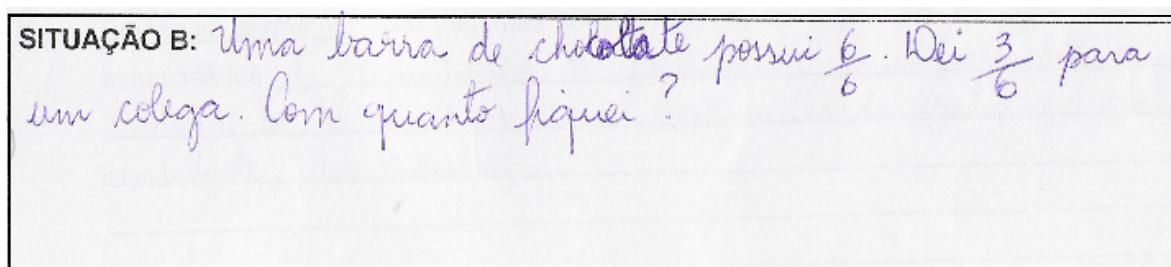 SITUAÇÃO B: Uma barra de chocolate possui 6/6. Dei 3/6 para
um colega. Com quanto fiquei?